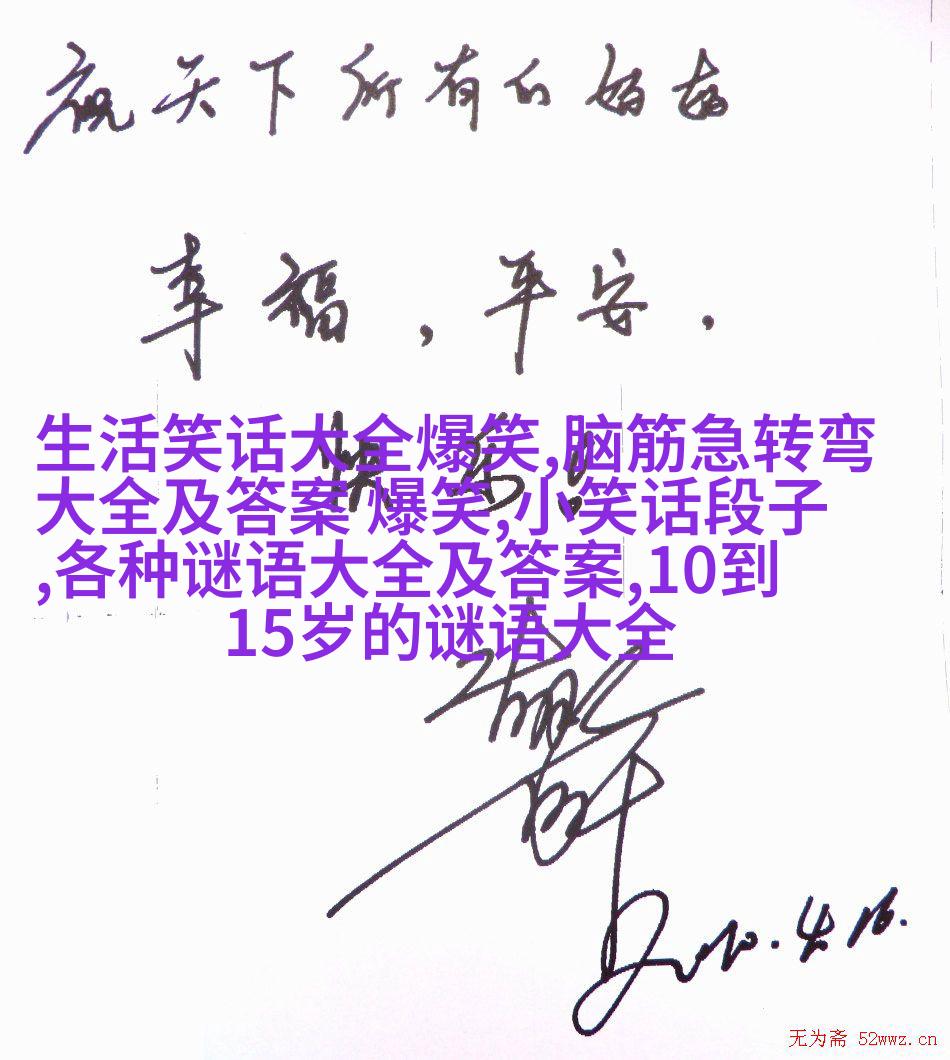 祝天下所有的妈妈
幸福，平安，
快乐！
生活笑话大全爆笑,脑筋急转弯
大全及答案 爆笑,小笑话段子
,各种谜语大全及答案,10到
15岁的谜语大全
2010.4.16.
无为斋 52wwz.cn